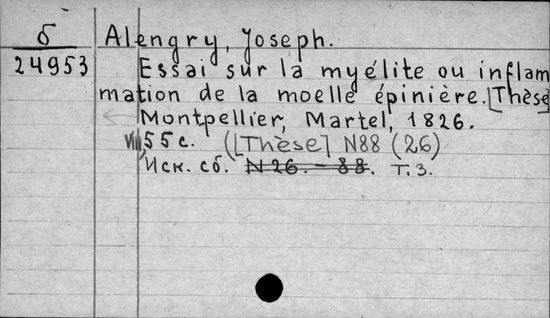 б
24953
Alengry, Joseph.
Essai sur la myélite ou inflam
mation de la moelle épinière. [Thèse]
Montpellier, Martel, 1826.
VIII, 55 с. ([Thèse] N88 (26)
Иск. сб. N 26. - 88. Т. 3.